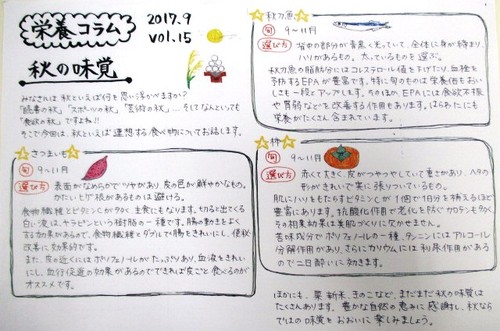 栄養コラム
2017.9
vol.15
秋の味覚
みなさんは秋といえば何を思い浮かべますか?
"読書の秋" "スポーツの秋" "芸術の秋"… そしてなんといっても
"食欲の秋"ですよね!!
そこで今回は、秋といえば連想する食べ物についてお話します。
さつまいも
旬 9~11月
選び方 表面がなめらかでツヤがあり、皮の色が鮮やかなもの。
かたいヒゲ根があるものは避ける。
食物繊維とビタミンCが多く、主食にもなります。切ると出てくる
白い液は、ヤラピンという樹脂の一種です。腸の動きをよく
する効果があるので、食物繊維とダブルで腸をきれいにし、便秘
改善に効果的です。
また、皮の近くにはポリフェノールがたっぷりあり、血液をきれい
にし、血行促進の効果があるのでできれば皮ごと食べるのが
オススメです。
秋刀魚
旬 9~11月
選び方 背中の部分が青黒く光っていて、全体に身が締まり、
ハリがあるもの。太っているものを選ぶ。
秋刀魚の脂肪分にはコレステロール値を下げたり、血栓を
予防するEPAが豊富です。特に旬のものは栄養価もおい
しさも一段とアップします。そのほか、EPAには食欲不振
や胃弱などを改善する作用もあります。はらわたにも
栄養がたくさん含まれています。
柿
旬 9~11月
選び方 赤くて大きく、皮がつやつやしていて重さがあり、ヘタの
形がきれいで実に張りついているもの。
肌にハリをもたらすビタミンCが1個で1日分を補えるほど
豊富にあります。抗酸化作用で老化を防ぐカロテンも多く、
その相乗効果は美肌づくりに欠かせません。
苦味成分でポリフェノールの一種、タンニンにはアルコール
分解作用があり、さらにカリウムには利尿作用がある
ので二日酔いに効きます。
ほかにも、栗、新米、きのこなど、まだまだ秋の味覚は
たくさんあります。豊かな自然の恵みに感謝し、秋なら
ではの味覚をおおいに楽しみましょう。